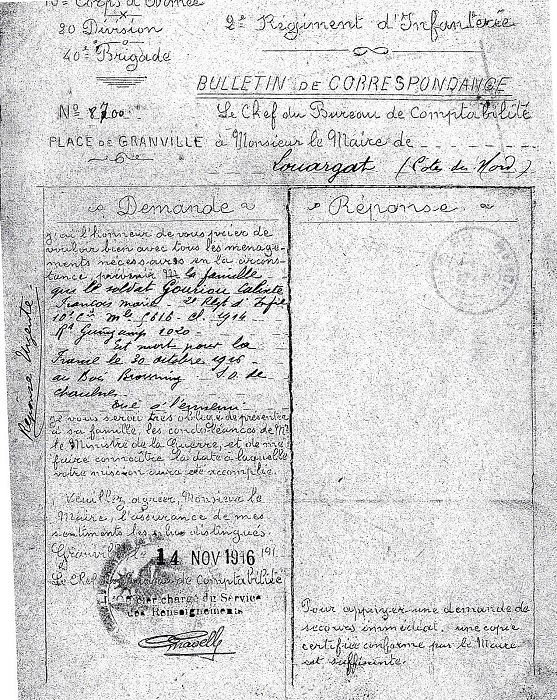 10e Corps d'Armée
20 Division
40e Brigade
2e Régiment d'Infanterie
BULLETIN DE CORRESPONDANCE
No 8700
Le Chef du Bureau de Comptabilité
PLACE DE GRANVILLE à Monsieur le Maire de
Louargat (Cotes du Nord)
Demande
J'ai l'honneur de vous prier de
vouloir bien avec tous les ménage-
ments nécessaires en la circons-
tance, prévenir la famille
que le soldat Gouriou Calixte
François marie 2e Regt d'Infie
10e Cie Mle C616 Cl. 1914
Rt Guingamp 1020
Est mort pour la
France le 30 octobre 1916
au Boi Browning S.O. de
chaulnes
Tué à l'ennemi
Je vous serai très obligé de présenter
à sa famille, les condoléances de Mr
le Ministre de la Guerre, et de me
faire connaître la date à laquelle
votre mission aura été accomplie.
Veuillez, agréer, Monsieur le
Maire, l'assurance de mes
sentiments les plus distingués.
Granville 14 NOV 1916 191
Le Chef du Bureau de Comptabilité
L'Officier chargé du Service
des Renseignements
Réponse Urgente
Réponse
Pour appuyer une demande de
secours immédiat, une copie
certifiée conforme par le Maire
est suffisante.